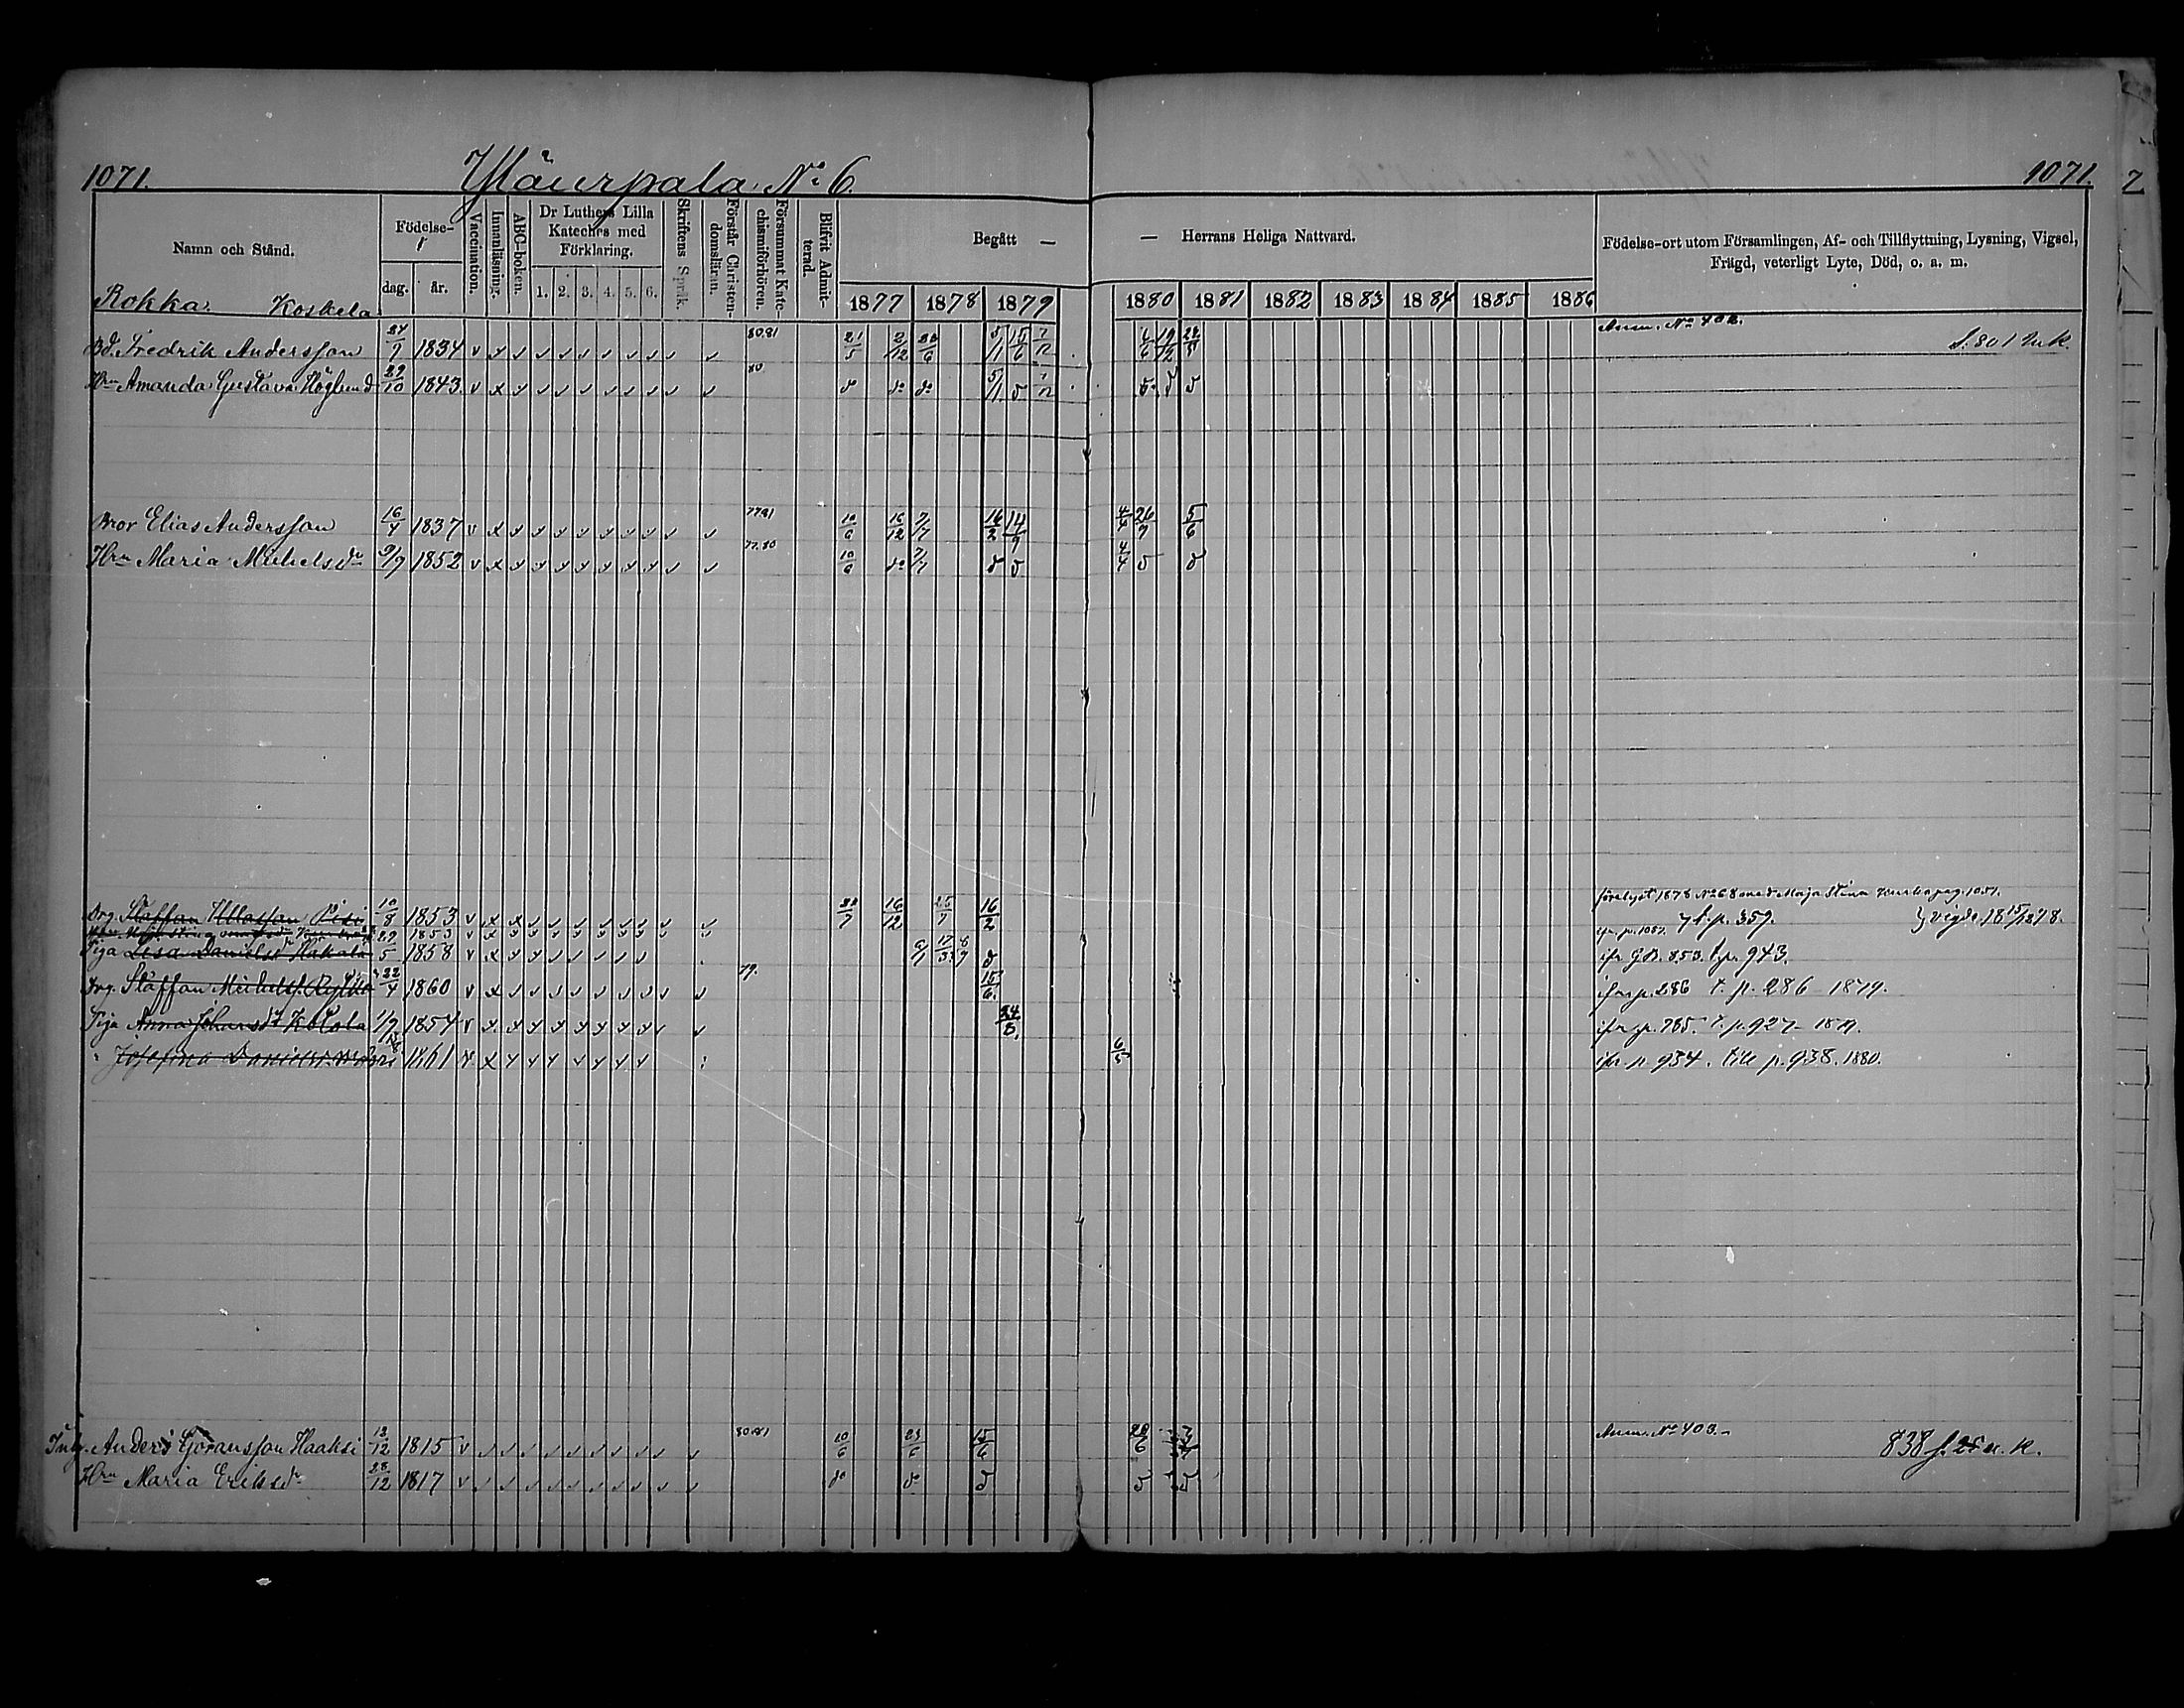 1071. Yläurpala. No 6. 1071.
Namn och Stånd. Födelse- dag. år. Vaccination. Innanläsning. ABC-boken. Dr Luthers Lilla Kateches med Förklaring. 1. 2. 3. 4. 5. 6. Skriftens Språk. Förstår Christendomsläran. Försummat Katechismiförhören. Blifvit Admitterad. Begått — — Herrans Heliga Nattvard. Födelse-ort utom Församlingen, Af- och Tillflyttning, Lysning, Vigsel, Frägd, veterligt Lyte, Död, o. a. m.
Rokka. Koskela 1877 1878 1879 1880 1881 1882 1883 1884 1885 1886
Bd. Fredrik Andersson 24/7 1834 80.81 21/5 2/12 5/11 15/6 7/12 6/6 19/12 Anm. No 402.
Hrn Amanda Gustava Höglund 29/10 1843 80 do do 5/11
Bror Elias Andersson 16/4 1837 77.81 10/6 16/12 7/7 16/2 14/9 4/4 26/9 5/6
Hrn Maria Michelsdr 9/9 1852 77.80 10/6 do 7/7 4/4
förelyst 1878 No 68 med Maja Stina pag. 1051.
Drg. Staffan Pisi 10/8 1853 22/7 16/12 25/7 16/2 t. p. 359. vigde 15/12 1878.
1853 ifr. p. 1051.
Piga Lisa Danielsdr Hakala 29/5 1858 17/3 ifr G.B. 853. t. p. 943.
Drg. Staffan Michelss. 22/4 1860 79. 15/6 ifr p. 286 t. p. 286 1879.
Piga Anna Johansdr Kotola 1/9 1854 24/8 ifr p. 785. t. p. 927 1879.
" Josefina 1861 6/5 ifr p. 934. till p. 938. 1880.
Inh. Anders Göransson Haaksi 13/12 1815 80.81 10/6 23/6 15/6 20/6 Anm. No 403.- 838 n. k.
Hrn Maria Eriksdr 28/12 1817 do do